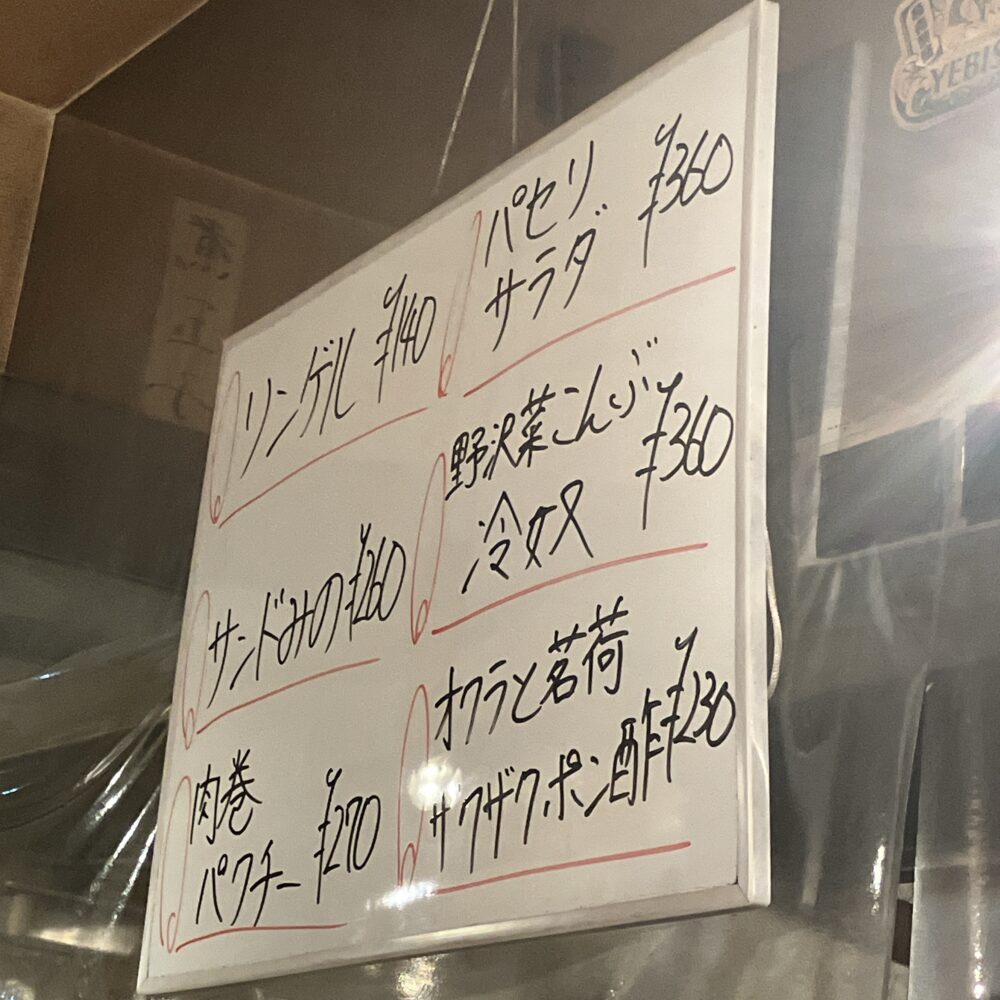 リンゲル ¥140
サンドみの ¥260
肉巻
パクチー ¥270
パセリ
サラダ ¥360
野沢菜こんぶ
冷奴 ¥360
オクラと茗荷
サクザクポン酢 ¥230
YEBIS